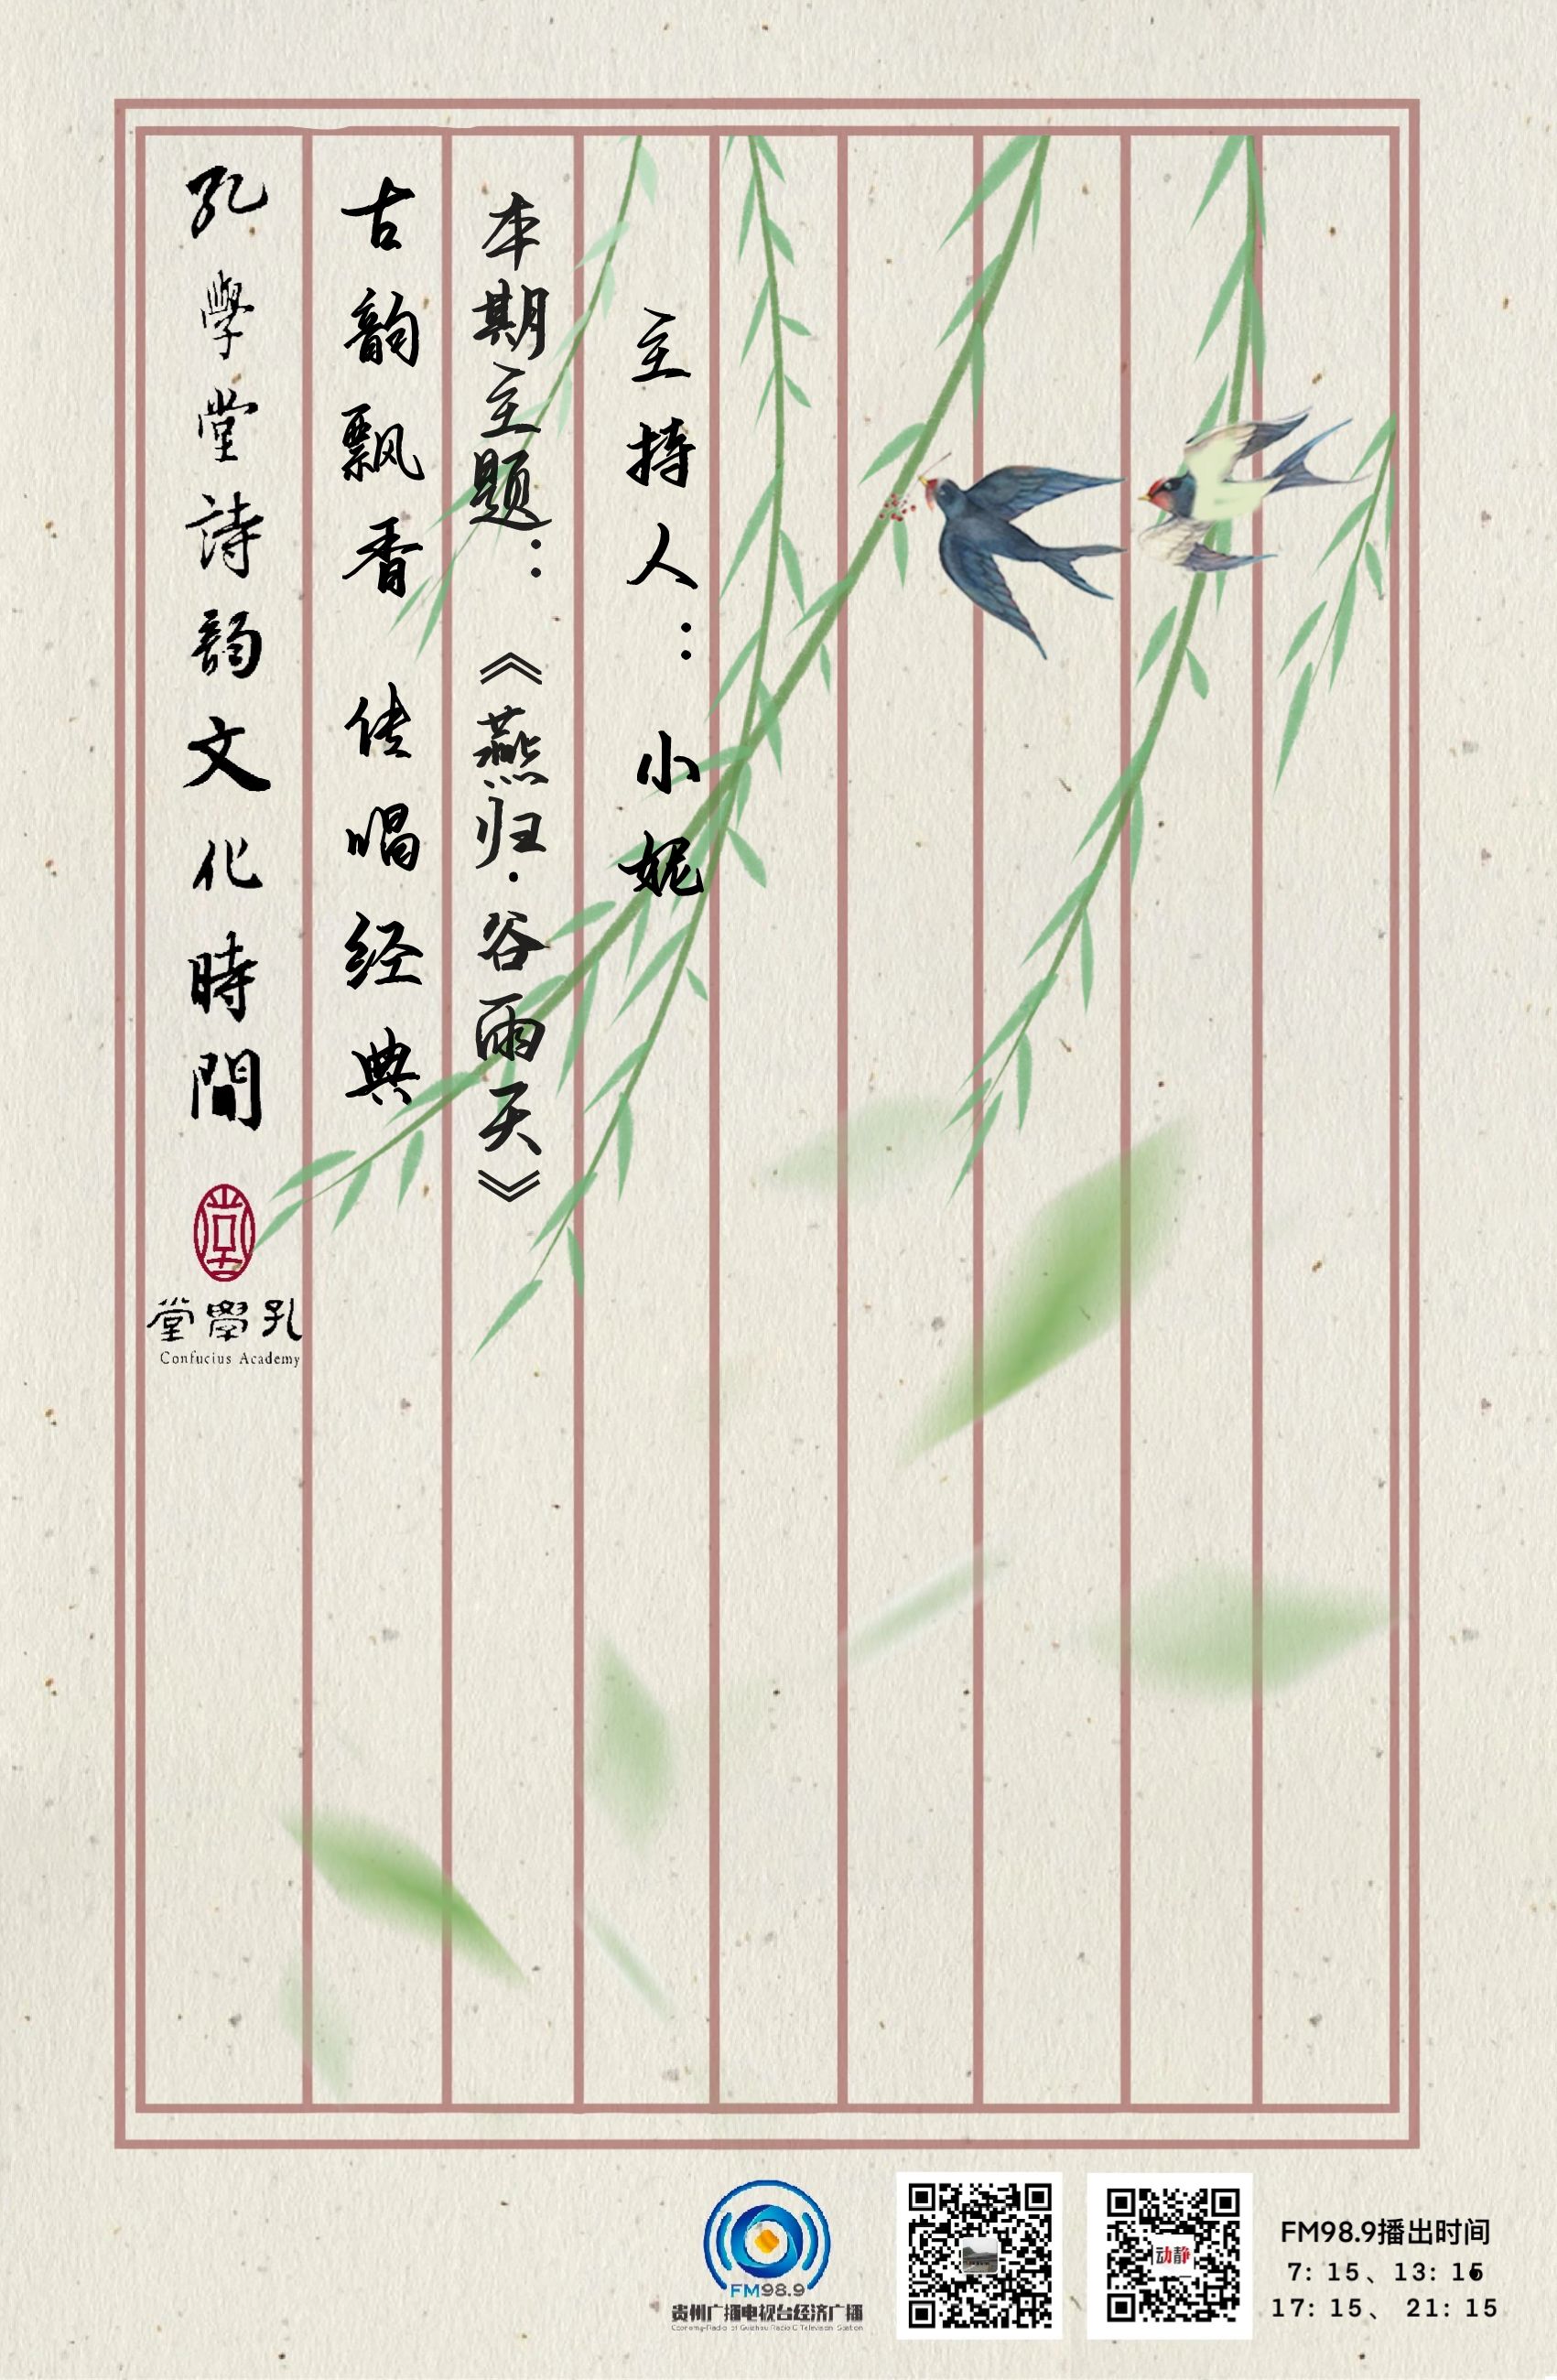 孔學堂詩韵文化時間
古韵飘香 传唱经典
本期主题：《燕归·谷雨天》
主持人：小妮
堂學孔
Confucius Academy
FM98.9
贵州广播电视台经济广播
动静
FM98.9播出时间
7: 15、13: 15
17: 15、 21: 15